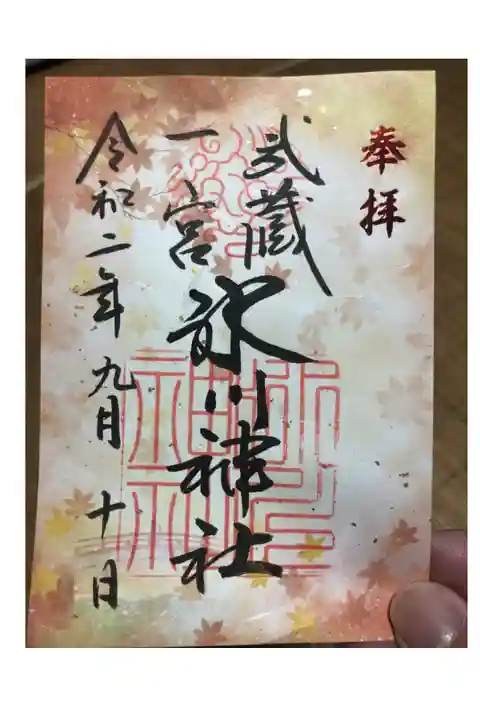 奉拝
武蔵
一宮
氷川神社
令和二年九月十日